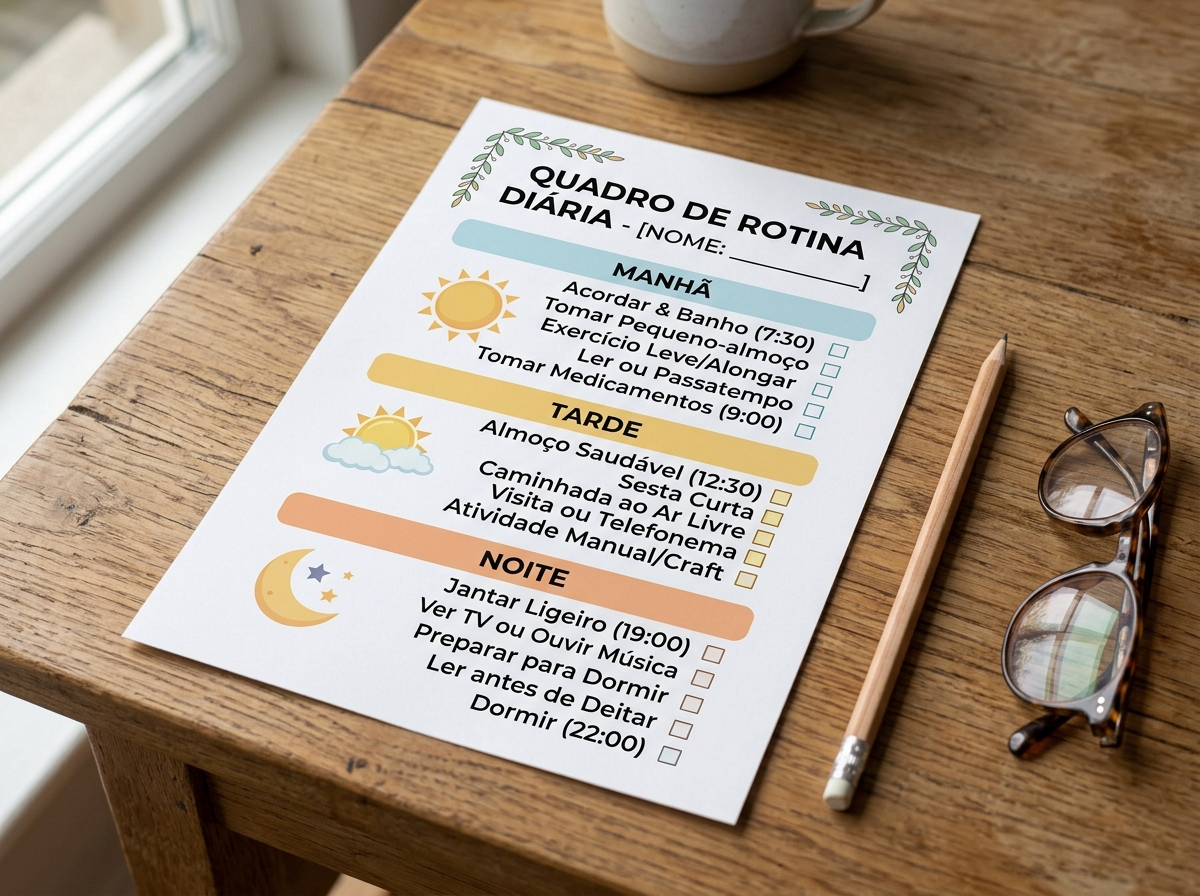 QUADRO DE ROTINA
DIÁRIA - [NOME: __________]
MANHÃ
Acordar & Banho (7:30)
Tomar Pequeno-almoço
Exercício Leve/Alongar
Ler ou Passatempo
Tomar Medicamentos (9:00)
TARDE
Almoço Saudável (12:30)
Sesta Curta
Caminhada ao Ar Livre
Visita ou Telefonema
Atividade Manual/Craft
NOITE
Jantar Ligeiro (19:00)
Ver TV ou Ouvir Música
Preparar para Dormir
Ler antes de Deitar
Dormir (22:00)